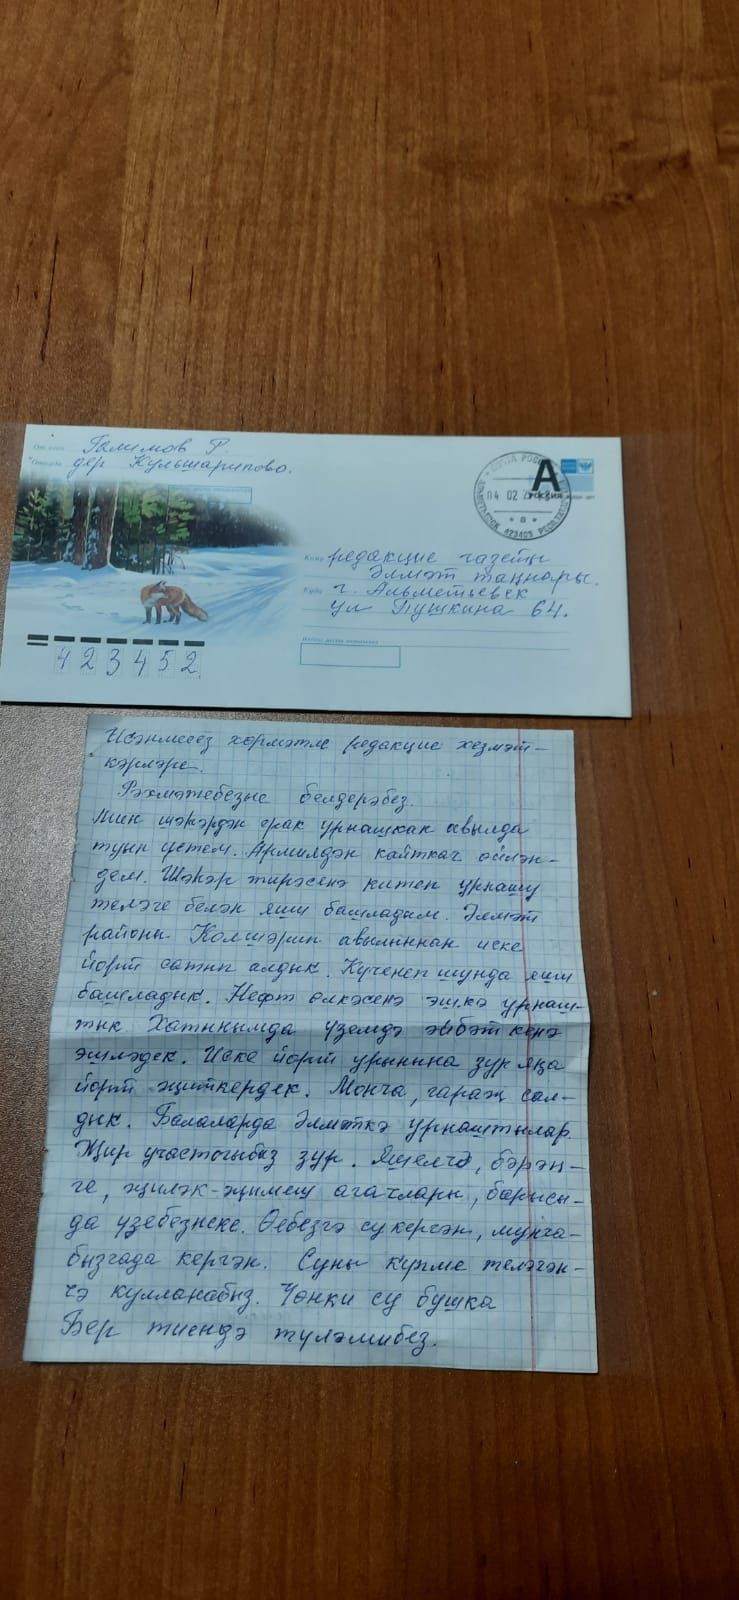 От кого Галимов Р.
Откуда дер Кульшарипово.
ПОЧТА РОССИИ
А
РОССИЯ
04 02
АЛЬМЕТЬЕВСК 423403
Кому редакцие газеты
Элмэт таңнары.
Куда г. Альметьевск
ул Пушкина 64.
423452
Исәнмесез хөрмәтле редакцие хезмәт-
кәрләре.
Рәхмәтебезне белдерәбез.
Мин шәһәрдән ерак урнашкан авылда
туып үстем. Армиядән кайткач өйлән-
дем. Шәһәр тирәсенә китеп урнашу
теләге белән яши башладым. Әлмәт
районы Колшәрип авылыннан иске
йорт сатып алдык. Күченеп шунда яши
башладык. Нефт өлкәсенә эшкә урнаш-
тык. Хатынымда үземдә әйбәт кенә
эшләдек. Иске йорт урынына зур яңа
йорт җиткердек. Монча, гараж сал-
дык. Балаларда Әлмәткә урнаштылар.
Җир участогыбыз зур. Яшелчә, бәрәң-
ге, җиләк-җимеш агачлары, барысы-
да үзебезнеке. Өебезгә су кергән, мунча-
бызгада кергән. Суны күпме теләгән-
чә кулланабыз. Чөнки су бушка
Бер тиендә түләмибез.